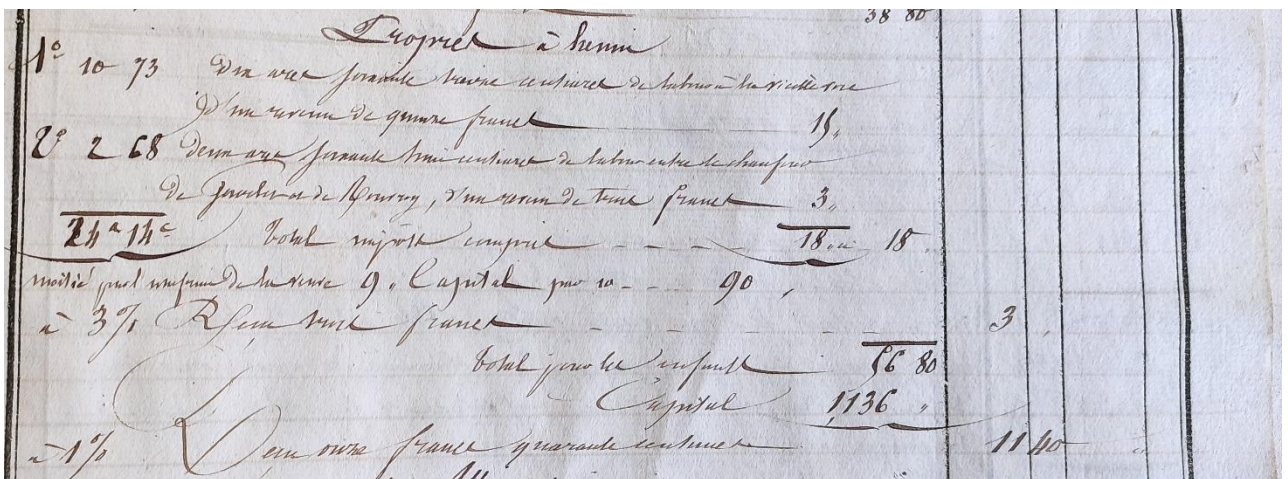 38 80
Propriét à henin
1° 10 73 Dix ares soixante treize centiares de labour à la vieille voie
D'un revenu de quinze francs 15 "
2° 2 68 Deux ares soixante huit centiares de labour entre les chemins
de et de Rouvroy, d'un revenu de trois francs 3 "
24a 14c Total impôt compris 18 " 18
moitié pour l'usufruit de la veuve 9 " Capital par 10 90 "
à 3% Reçu trois francs 3 "
Total pour les enfants 56 80
Capital 1136 "
à 1% Reçu onze francs quarante centimes 11 40 "